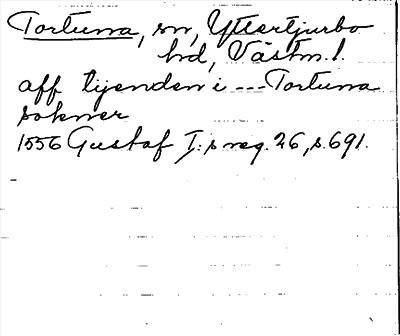 Tortuna, sn, Yttertjurbo
hd, Västm. l.
aff tijenden i --- Tortuna
sokner
1556 Gustaf I:s reg. 26, s. 691.